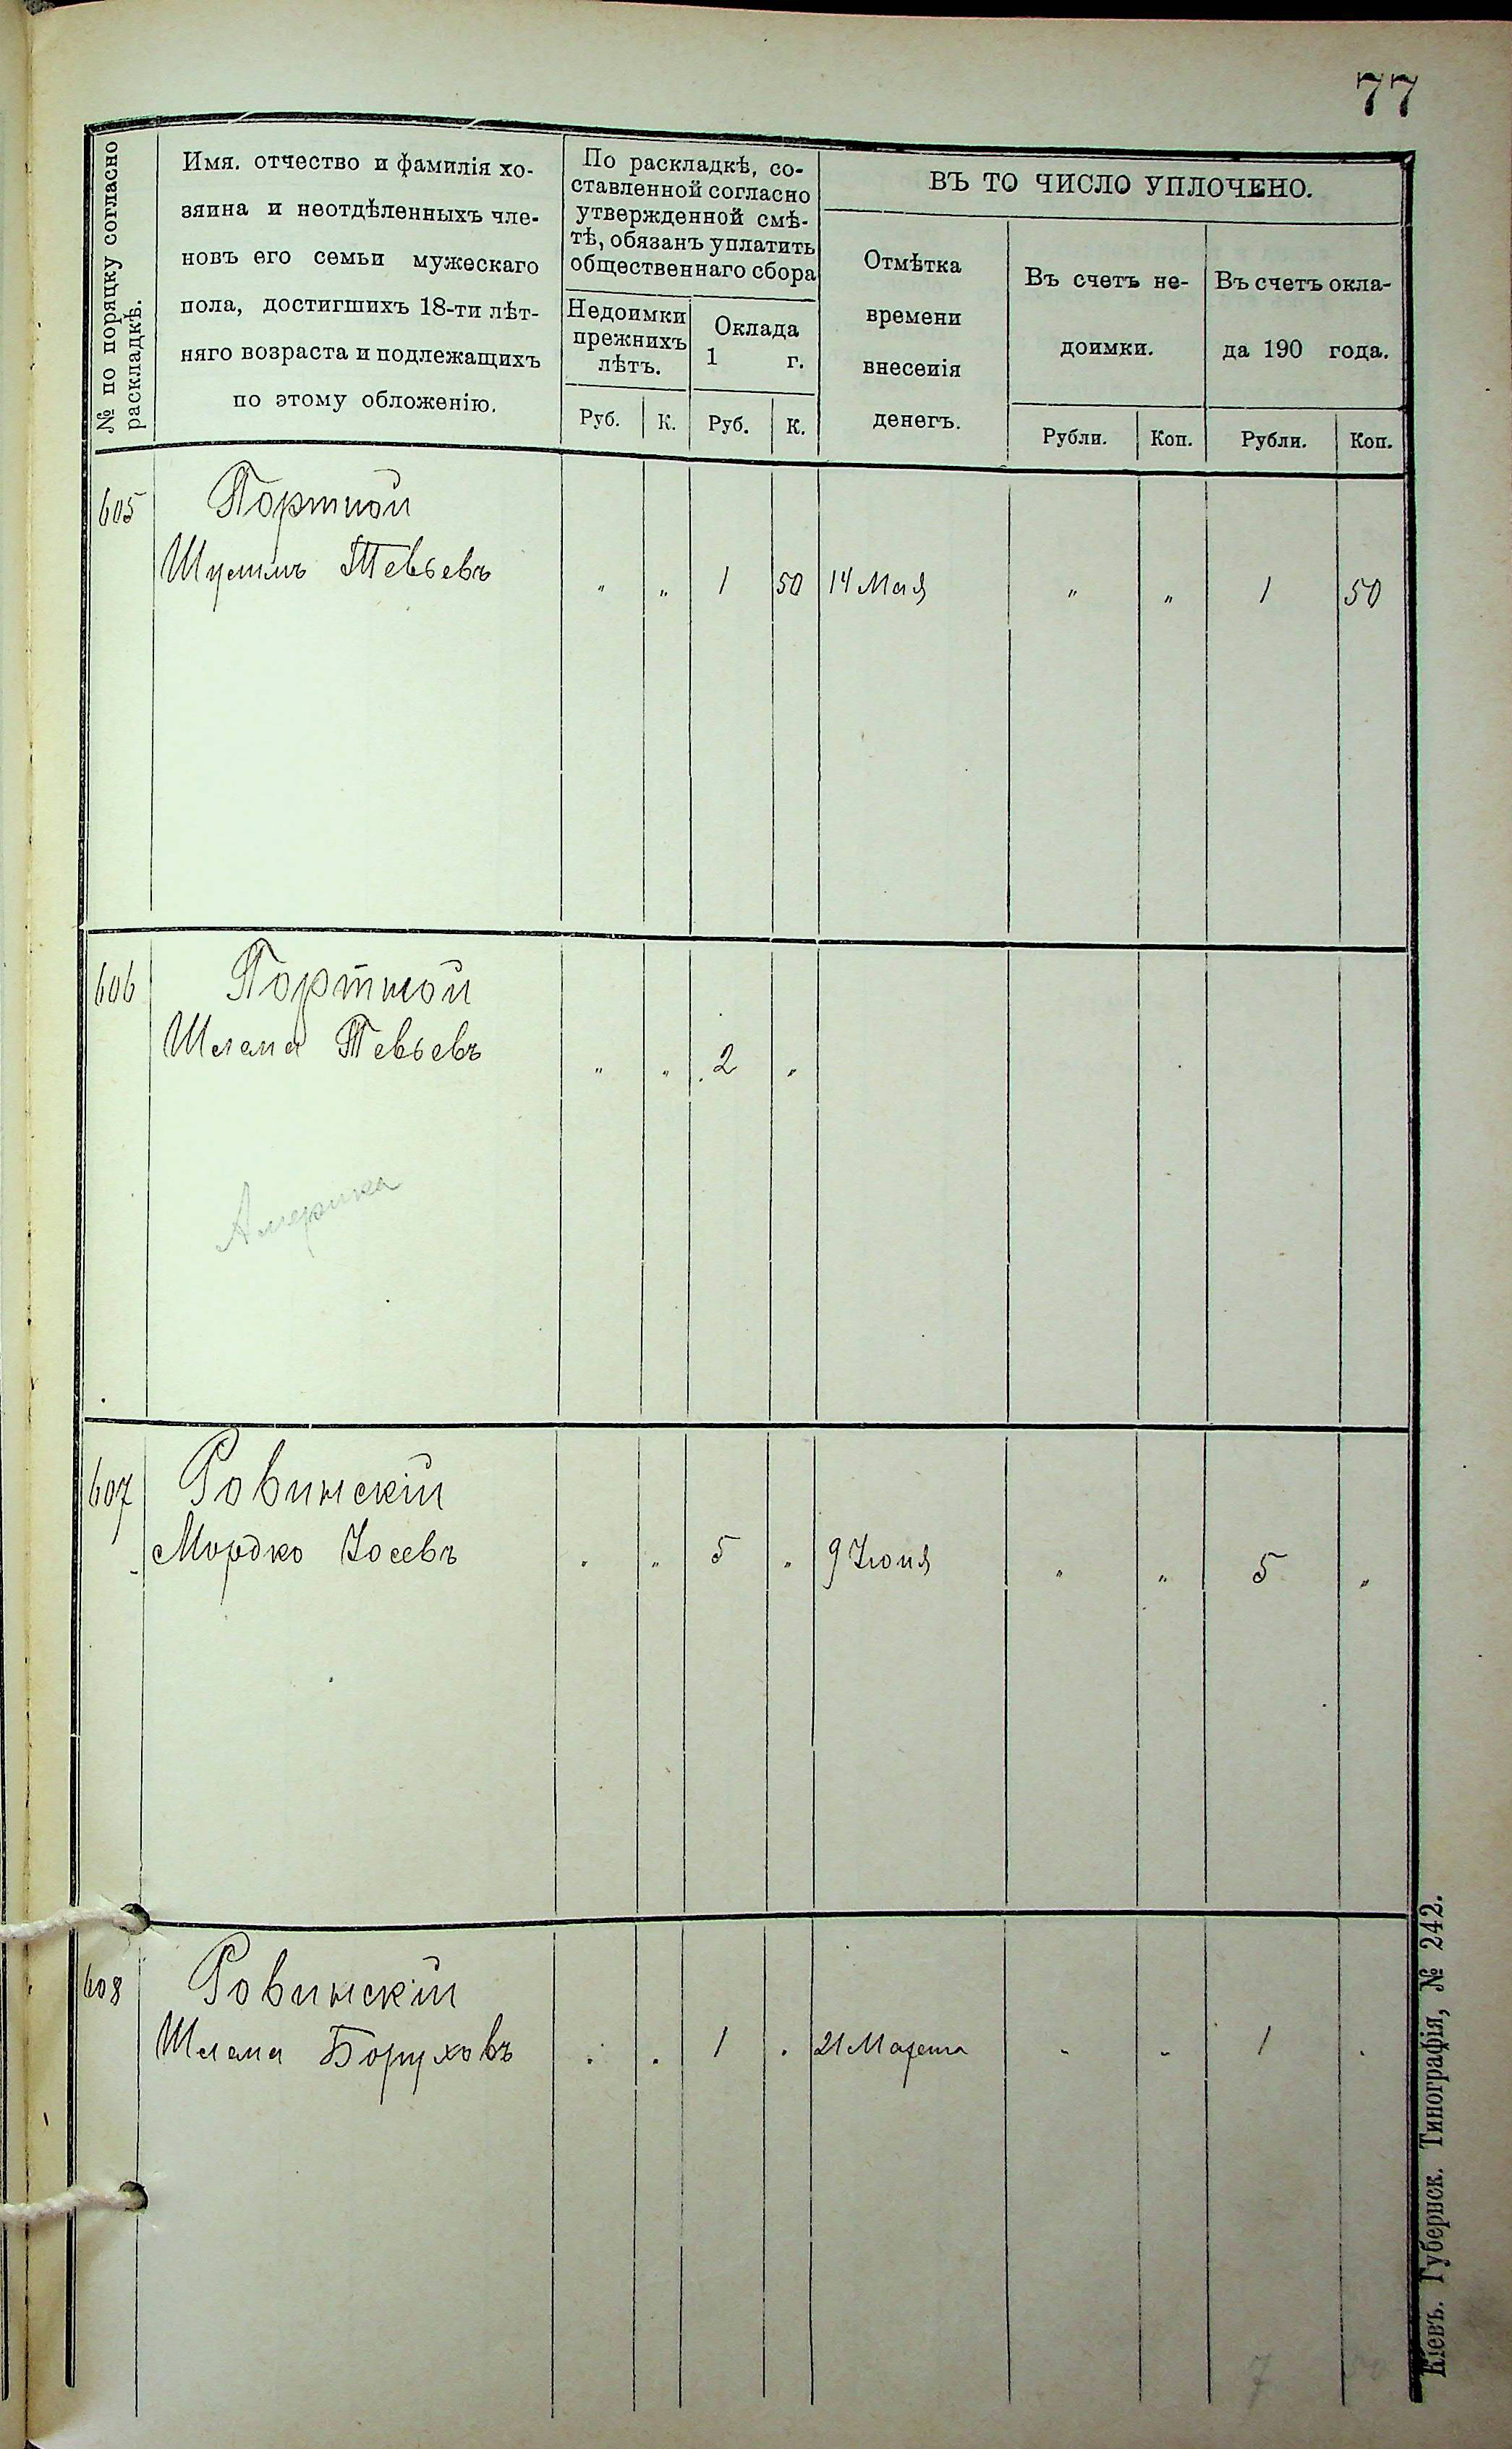 77
№ по поряцку согласно
раскладкѣ.
Имя. отчество и фамилія хо-
зяина и неотдѣленныхъ чле-
новъ его семьи мужескаго
пола, достигшихъ 18-ти лѣт-
няго возраста и подлежащихъ
по этому обложенію.
По раскладкѣ, со-
ставленной согласно
утвержденной смѣ-
тѣ, обязанъ уплатить
общественнаго сбора
Недоимки
прежнихъ
лѣтъ.
Оклада
1 г.
Руб. К. Руб. К.
ВЪ ТО ЧИСЛО УПЛОЧЕНО.
Отмѣтка
времени
внесенія
денегъ.
Въ счетъ не-
доимки.
Въ счетъ окла-
да 190 года.
Рубли. Коп. Рубли. Коп.
605 Портной
Шулимъ Тевьевъ " " 1 50 14 Мая " " 1 50
606 Портной
Шлема Тевьевъ " " 2 "
Америка
607 Ровинскій
Мордко Іосевъ " " 5 " 9 Іюня " " 5 "
608 Ровинскій
Шлема Боруховъ " " 1 " 21 Марта " " 1 "
7
Кіевъ. Губернск. Типографія, № 242.